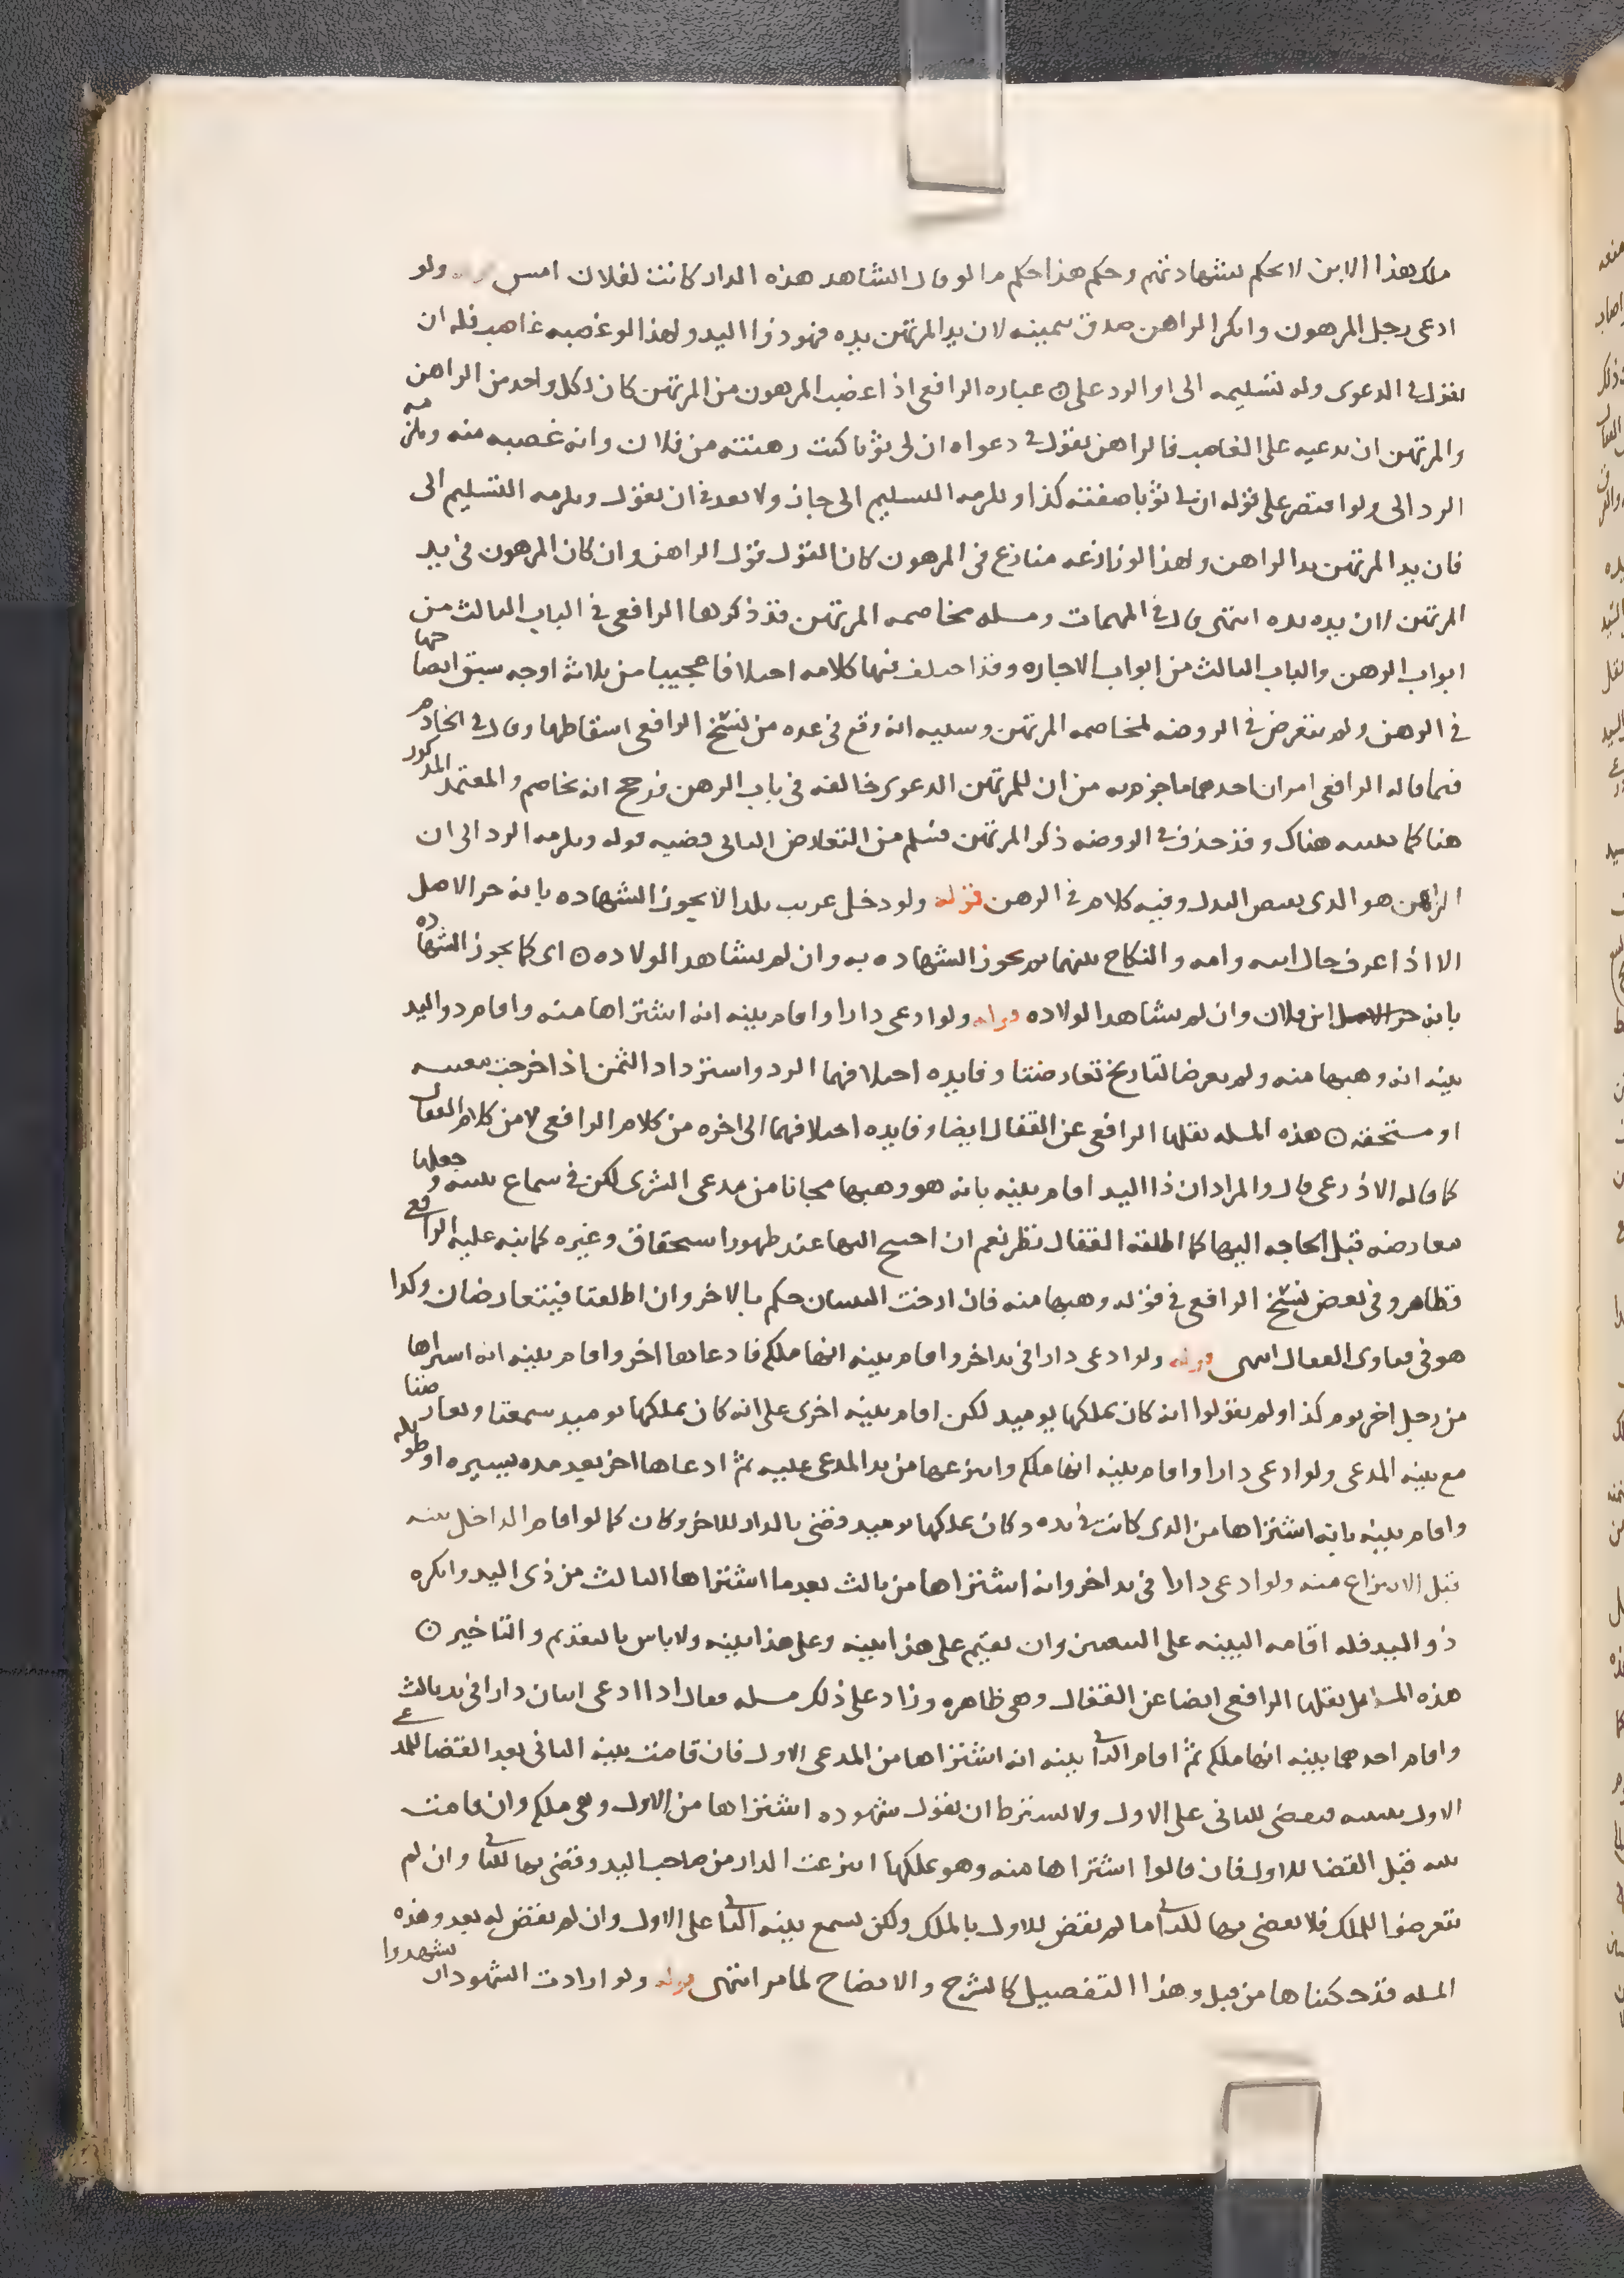 ملك هذا الابن لا يحكم بشهادتهم وحكم هذا حكم ما لو قال الشاهد هذه الدار كانت لفلان امس قوله ولو
ادعى رجل المرهون وانكر الراهن صدق بيمينه لان يد المرتهن يده فهو ذو اليد ولهذا لو غصبه غاصب فله ان
يقول في الدعوى وله تسليمه الى او الرد على ن عباره الرافعى اذا غصب المرهون من المرتهن كان لكل واحد من الراهن
والمرتهن ان يدعيه على الغاصب فالراهن يقول في دعواه ان لى ثوبا كنت رهنته من فلان وانه غصبه منه ويلزمه
الرد الى ولو اقتصر على قوله ان لى ثوبا صفته كذا ويلزمه التسليم الى جاز ولا بعد في ان يقول ويلزمه التسليم الى
فان يد المرتهن يد الراهن ولهذا لو نازعه منازع في المرهون كان القول قول الراهن وان كان المرهون في يد
المرتهن لان يده يده انتهى قال في المهمات ومسله مخاصمه المرتهن قد ذكرها الرافعى في الباب الثالث من
ابواب الرهن والباب الثالث من ابواب الاجاره وقد اختلف فيها كلامه اختلافا عجيبا من ثلاثة اوجه سبق ايضاحها
في الرهن ولم يتعرض في الروضه لمخاصمه المرتهن وسببه انه وقع في عده من نسخ الرافعى اسقاطها وقال في الخادم
فيما قاله الرافعى امران احدهما ماجزم به من ان للمرتهن الدعوى خالفه في باب الرهن فرجح انه يخاصم والمعتمد المذكور
هنا كما بينته هناك وقد حذف في الروضه ذكر المرتهن فسلم من التعارض الثانى قضيه قوله ويلزمه الرد الى ان
الراهن هو الذى يقبض البدل وفيه كلام في الرهن قوله ولو دخل غريب بلدا لا يجوز الشهاده بانه حر الاصل
الا اذا عرف حال ابيه وامه والنكاح بينهما فيجوز الشهاده به وان لم يشاهد الولاده ن اى كما يجوز الشهاده
بانه ابن فلان وان لم يشاهد الولاده قوله ولو ادعى دارا واقام بينه انه اشتراها منه واقام ذو اليد
بينه انه وهبها منه ولم يعرضا لتاريخ تعارضتا وفايده اختلافهما الرد واسترداد الثمن اذا خرجت معيبه
او مستحقه ن هذه المسله نقلها الرافعى عن القفال ايضا وفايده اختلافهما الى اخره من كلام الرافعى لا من كلام القفال
كما قاله الاذرعى قال والمراد ان ذا اليد اقام بينه بانه هو وهبها مجانا من مدعى الشرى لكن في سماع بينته وجعلها
معارضه قبل الحاجه اليها كما اطلقه القفال نظر نعم ان احتيج اليها عند ظهور استحقاق وغيره كما نبه عليه الرافعى
فظاهر وفى بعض نسخ الرافعى في قوله وهبها منه فان ارخت البينتان حكم بالاخر وان اطلقتا فيتعارضان وكذا
هو في فتاوى القفال انتهى قوله ولو ادعى دارا في يد اخر واقام بينه انها ملكه فادعاها اخر واقام بينه انه اشتراها
من رجل اخر يوم كذا ولم يقولوا انه كان يملكها يوميذ لكن اقام بينه اخرى على انه كان يملكها يوميذ سمعتا وتعارضتا
مع بينه المدعى ولو ادعى دارا واقام بينه انها ملكه وانتزعها من يد المدعى عليه ثم ادعاها اخر بعد مده يسيره او طويله
واقام بينه بانه اشتراها من الذى كانت في يده وكان يملكها يوميذ وقضى بالدار للاخر وكان كما لو اقام الداخل بينه
قبل الانتزاع منه ولو ادعى دارا في يد اخر وانه اشتراها من ثالث بعد ما اشتراها الثالث من ذى اليد وانكره
ذو اليد فله اقامه البينه على البيعين وان يقيم على هذا بينه وعلى هذا بينه ولا باس بالتقديم والتاخير ن
هذه المسايل نقلها الرافعى ايضا عن القفال وهى ظاهره وزاد على ذلك مسله فقال اذا ادعى اثنان دارا في يد ثالث
واقام احدهما بينه انها ملكه ثم اقام الثانى بينه انه اشتراها من المدعى الاول فان قامت بينه الثانى بعد القضا للمدعى
الاول ببينته فيقضى للثانى على الاول ولا يشترط ان يقول شهوده اشتراها من الاول وهى ملكه وان قامت
بينته قبل القضا للاول فان قالوا اشتراها منه وهو يملكها انتزعت الدار من صاحب اليد وقضى بها للثانى وان لم
يتعرضوا للملك فلا يقضى بها للثانى ما لم يقض للاول بالملك ولكن يسمع بينه الثانى على الاول وان لم يقض له بعد وهذه
المسله قد حكيناها من قبل وهذا التفصيل كالشرح والايضاح لما مر انتهى قوله ولو ارادت الشهود ان يشهدوا